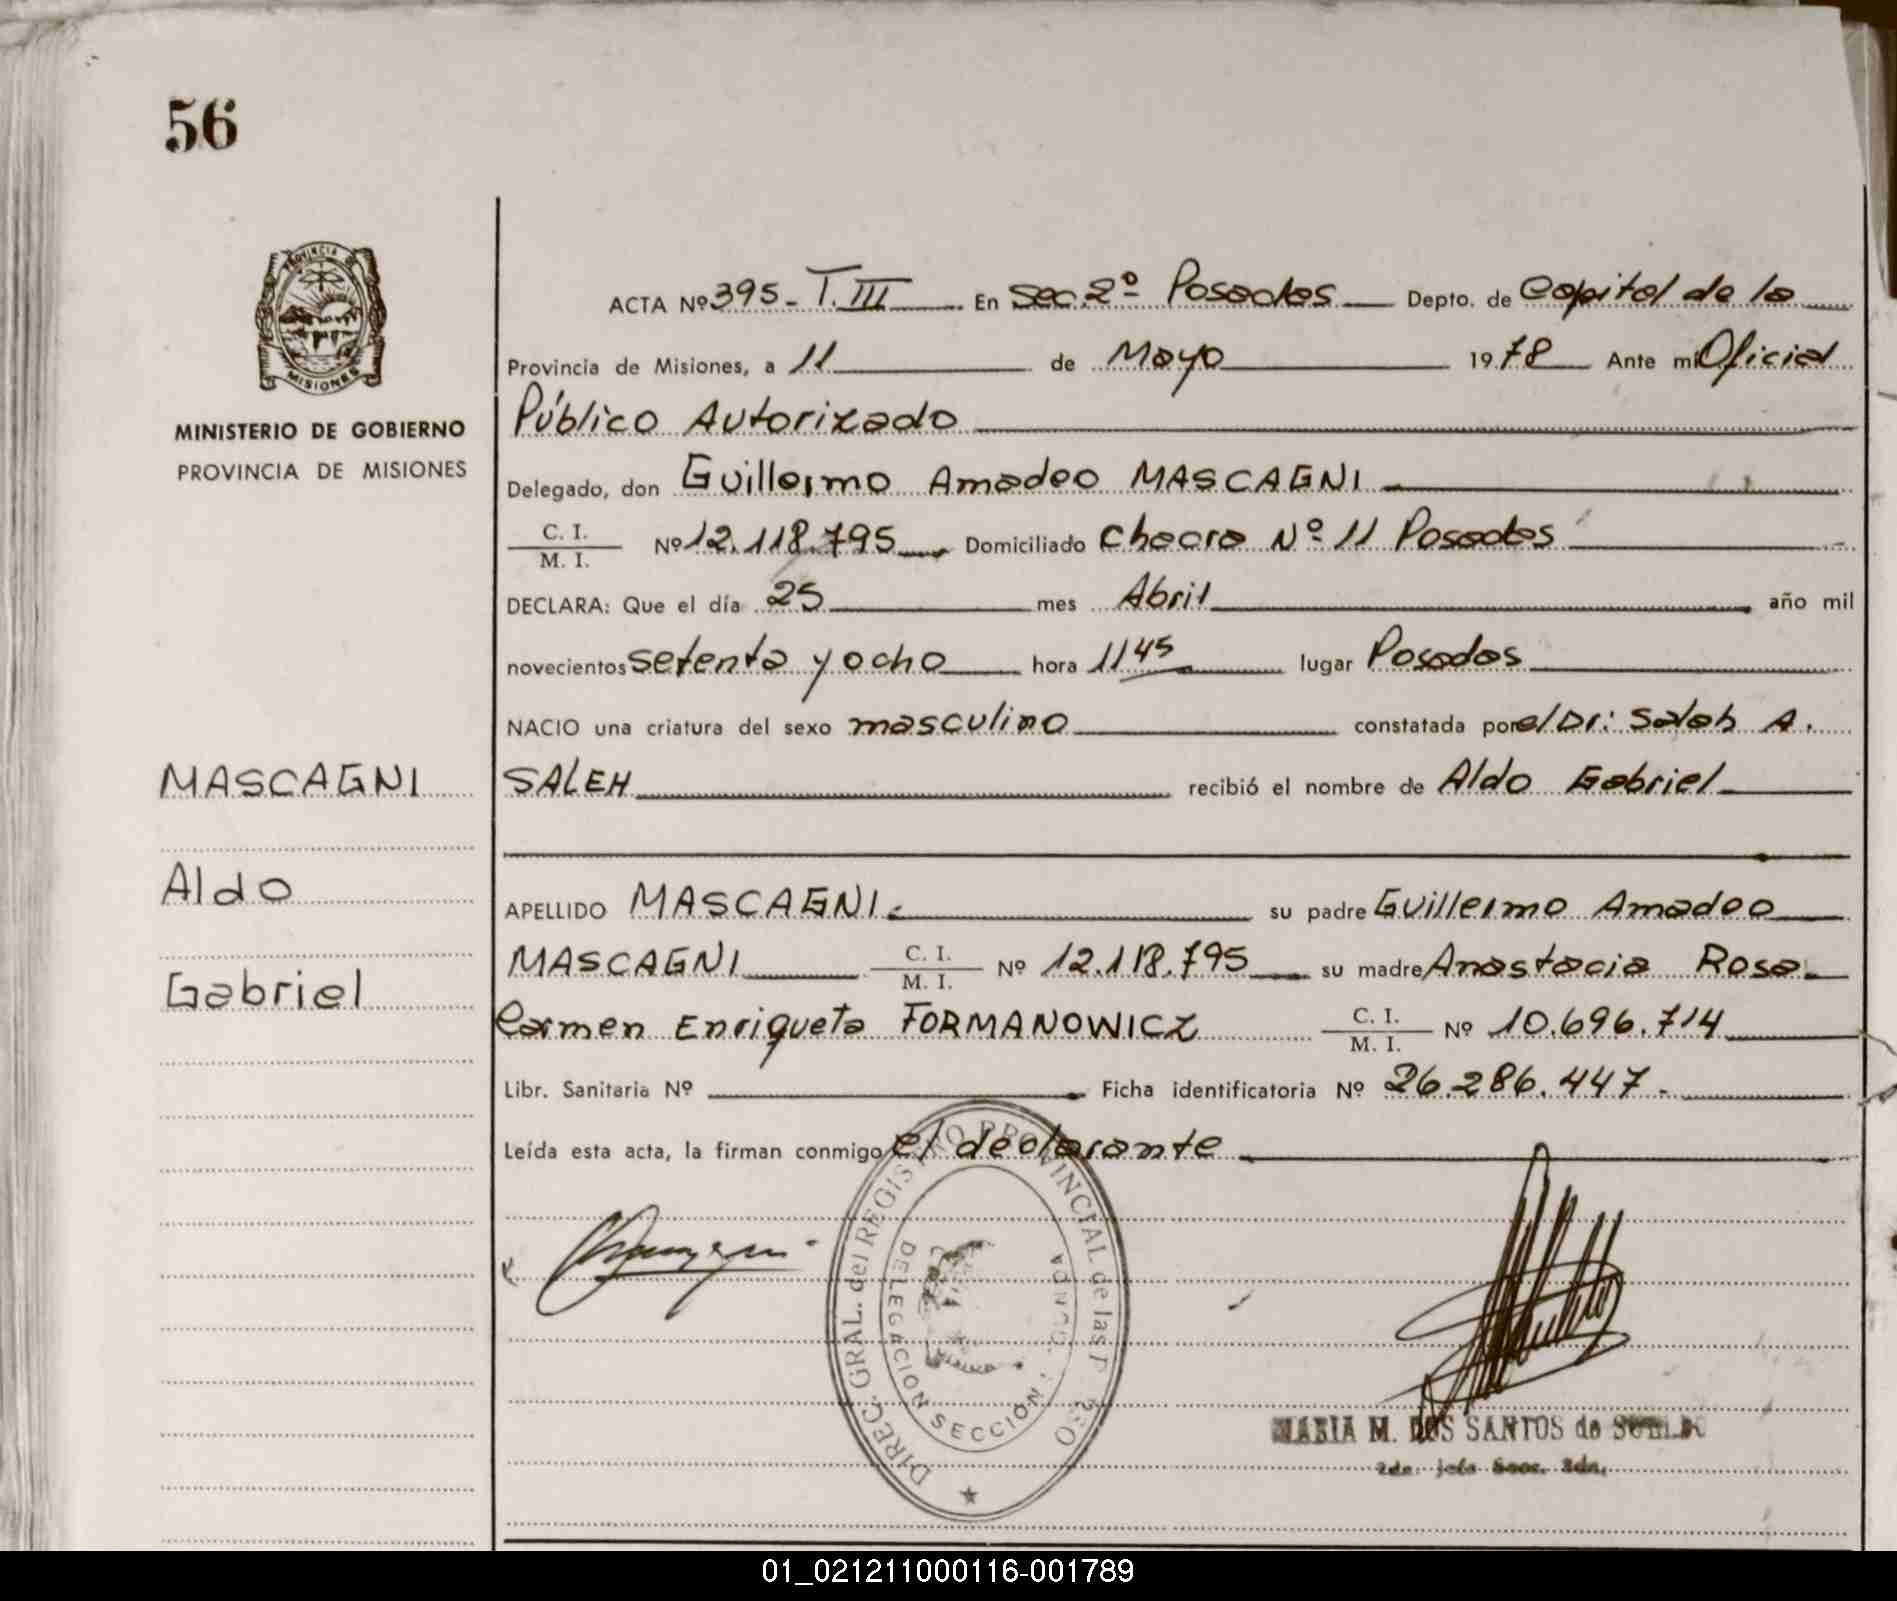 56
PROVINCIA DE
MISIONES
MINISTERIO DE GOBIERNO
PROVINCIA DE MISIONES
MASCAGNI
Aldo
Gabriel
ACTA Nº 395- T. III En Sec. 2º Posadas Depto. de Capital de la
Provincia de Misiones, a 11 de Mayo 1978 Ante mi Oficial
Público Autorizado
Delegado, don Guillermo Amadeo MASCAGNI
C. I.
M. I. Nº 12.118.795 Domiciliado Chacra Nº 11 Posadas
DECLARA: Que el día 25 mes Abril año mil
novecientos setenta y ocho hora 11 45 lugar Posadas
NACIO una criatura del sexo masculino constatada por el Dr: Saleh A.
SALEH recibió el nombre de Aldo Gabriel
APELLIDO MASCAGNI. su padre Guillermo Amadeo
MASCAGNI C. I.
M. I. Nº 12.118.795 su madre Anastacia Rosa
Carmen Enriqueta FORMANOWICZ C. I.
M. I. Nº 10.696.714
Libr. Sanitaria Nº Ficha identificatoria Nº 26.286.447.
Leída esta acta, la firman conmigo el declarante
DIREC. GRAL. del REGISTRO PROVINCIAL de las
DELEGACION SECCION
MARIA M. DOS SANTOS de
01_021211000116-001789